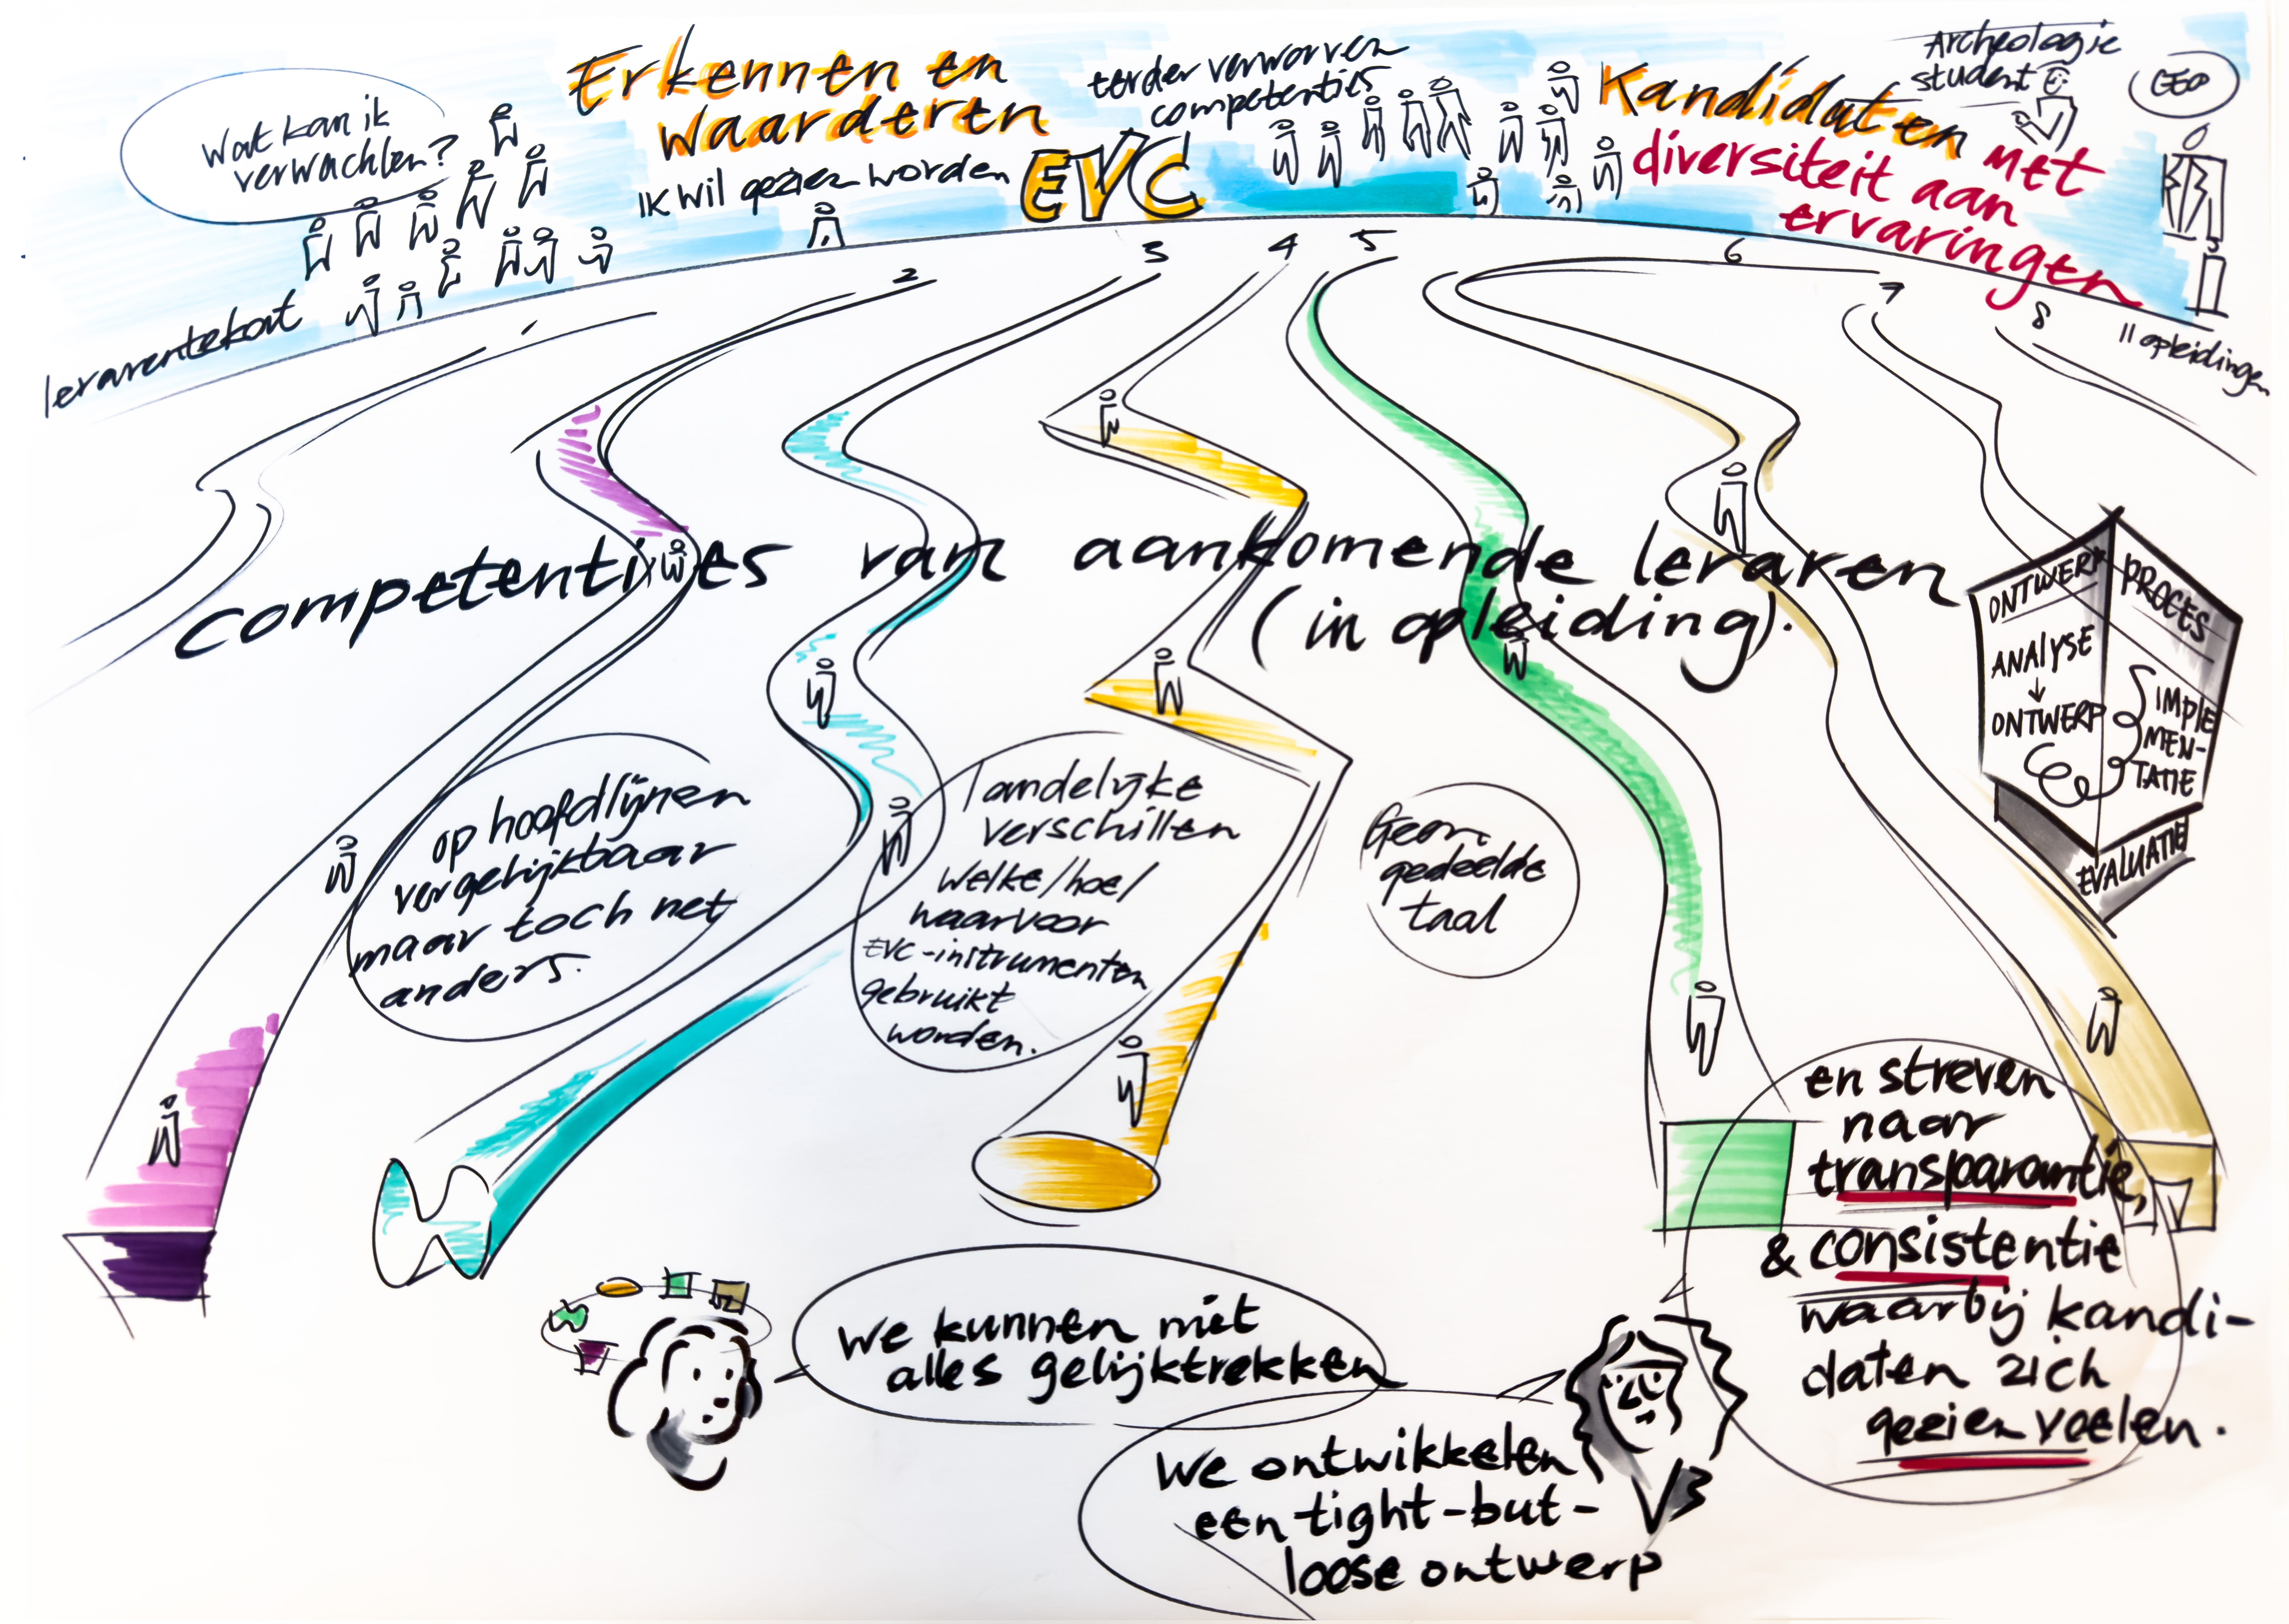 Wat kan ik
verwachten?
lerarentekort
Erkennen en
waarderen
IK wil gezien worden
EVC
eerder verworven
competenties
Kandidaten met
diversiteit aan
ervaringen
Archeologie
student
CEO
2
3
4
5
6
7
8
11 opleidingen
competenties van aankomende leraren
(in opleiding).
ONTWERP
PROCES
ANALYSE
↓
ONTWERP
IMPLE
MEN-
TATIE
EVALUATIE
op hoofdlijnen
vergelijkbaar
maar toch net
anders.
landelijke
verschillen
welke/hoe/
waarvoor
EVC-instrumenten
gebruikt
worden.
Geen
gedeelde
taal
en streven
naar
transparantie,
& consistentie
waarbij kandi-
daten zich
gezien voelen.
We kunnen niet
alles gelijktrekken
We ontwikkelen
een tight-but-
loose ontwerp